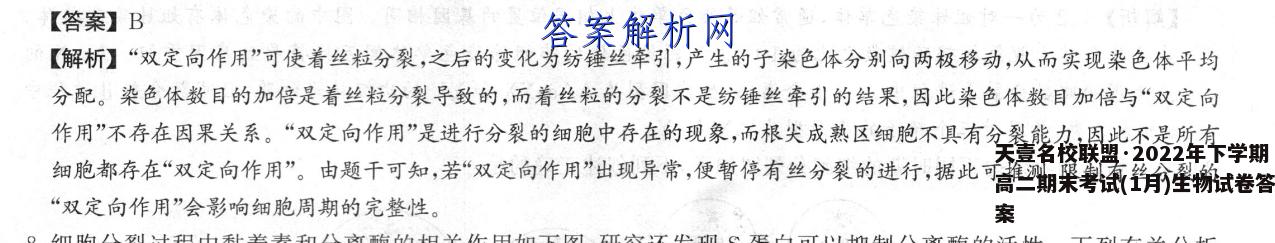 【答案】B
答案解析网
【解析】“双定向作用”可使着丝粒分裂,之后的变化为纺锤丝牵引,产生的子染色体分别向两极移动,从而实现染色体平均
分配。染色体数目的加倍是着丝粒分裂导致的,而着丝粒的分裂不是纺锤丝牵引的结果,因此染色体数目加倍与“双定向
作用”不存在因果关系。“双定向作用”是进行分裂的细胞中存在的现象,而根尖成熟区细胞不具有分裂能力,因此不是所有
细胞都存在“双定向作用”。由题干可知,若“双定向作用”出现异常,便暂停有丝分裂的进行,据此可推测,限制有丝分裂的
“双定向作用”会影响细胞周期的完整性。
天壹名校联盟·2022年下学期
高二期末考试(1月)生物试卷答
案
8. 细胞分裂过程中黏着素和分离酶的相关作用如下图,研究还发现S蛋白可以抑制分离酶的活性。下列有关分析